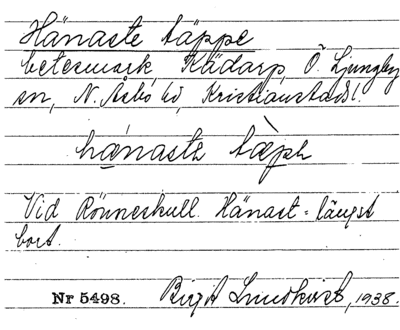 Hänaste täppe
betesmark, Kädarp, Ö. Ljungby
sn, N. Åsbo hd, Kristianstads l.
hǽnastə tæ̀pə
Vid Rönneskull. Hänast = längst
bort.
Nr 5498. Birgit Lundkvist, 1938.